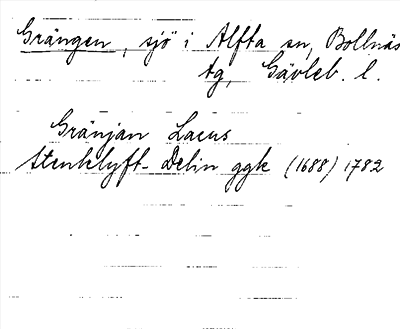 Grängen, sjö i Alfta sn, Bollnäs
tg, Gävleb. l.
Gränjan Lacus
Stenklyft-Delin ggk (1688) 1782